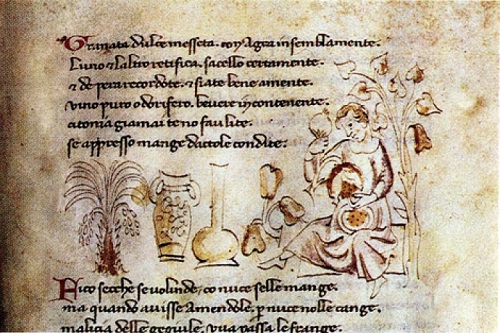 Granata dulce messeta. con Agra insemblamente.
Luno et laltro retifica. sacello certamente.
et de pera recordote. et siate bene amente.
vino puro odorifero. bevere incontenente.
citonia giamai te no fau lite.
se appresso mange dactole condite.
Fico secche se volinde, co nuce selle mange.
ma quando avisse Amendole, p nuce nolle cange.
malicia delle uva passa le frange.